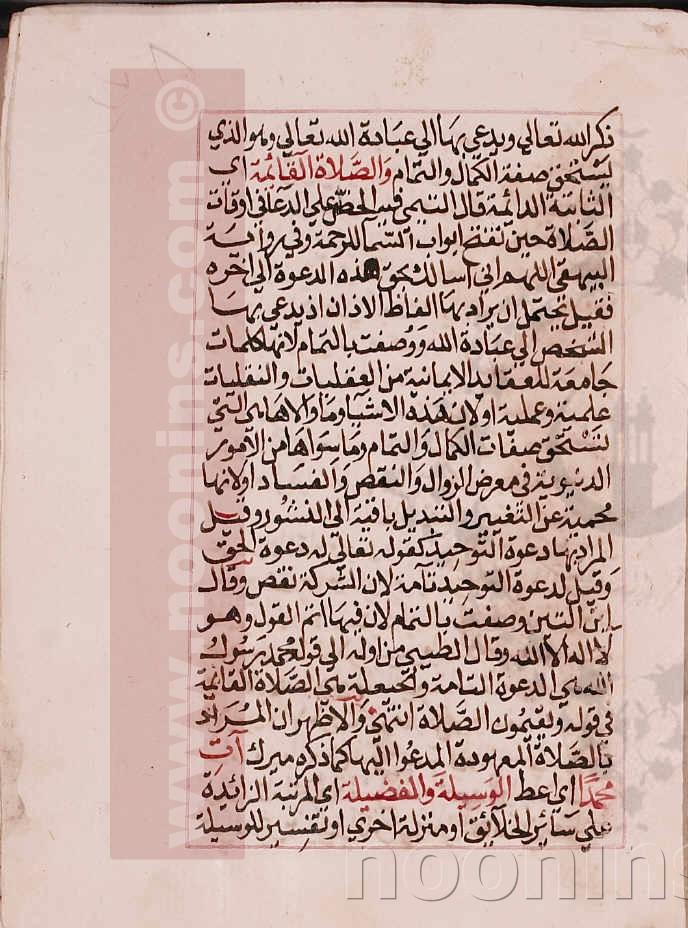 ذكر الله تعالي ويدعي بها الي عبادة الله تعالي وهو الذي
يستحق صفة الكمال والتمام والصلاة القائمة اي
الثابتة الدائمة قال التيمي فيه الحض علي الدعا في اوقات
الصلاة حين تفتح ابواب السما للرحمة وفي رواية
البيهقي اللهم اني اسالك بحق هذه الدعوة الي اخره
فقيل يحتمل ان يراد بها الفاظ الاذان اذ يدعي بها
الشخص الي عبادة الله ووصفت بالتمام لانها كلمات
جامعة للعقايد الايمانية من العقليات والنقليات
علمية وعملية او لان هذه الاشيا وما والاها هي التي
تستحق صفات الكمال والتمام وما سواها من الامور
الدنيوية في معرض الزوال والنقص والفساد او لانها
محمية عن التغيير والتبديل باقية الي النشور وقيل
المراد بها دعوة التوحيد كقوله تعالي له دعوة الحق
وقيل لدعوة التوحيد تامة لان الشركة نقص وقال
ابن التين وصفت بالتمام لان فيها اتم القول وهو
لا اله الا الله وقال الطيبي من اوله الي قوله محمد رسول
الله هي الدعوة التامة والحيعلة هي الصلاة القائمة
في قوله ويقيمون الصلاة انتهي والاظهر ان المراد
بالصلاة المعهودة المدعوا اليها كما ذكره ميرك آت
محمدا اي اعط الوسيلة والفضيلة اي المرتبة الزائدة
علي سائر الخلائق او منزلة اخري او تفسير للوسيلة
www.noonins.com ©
noonins